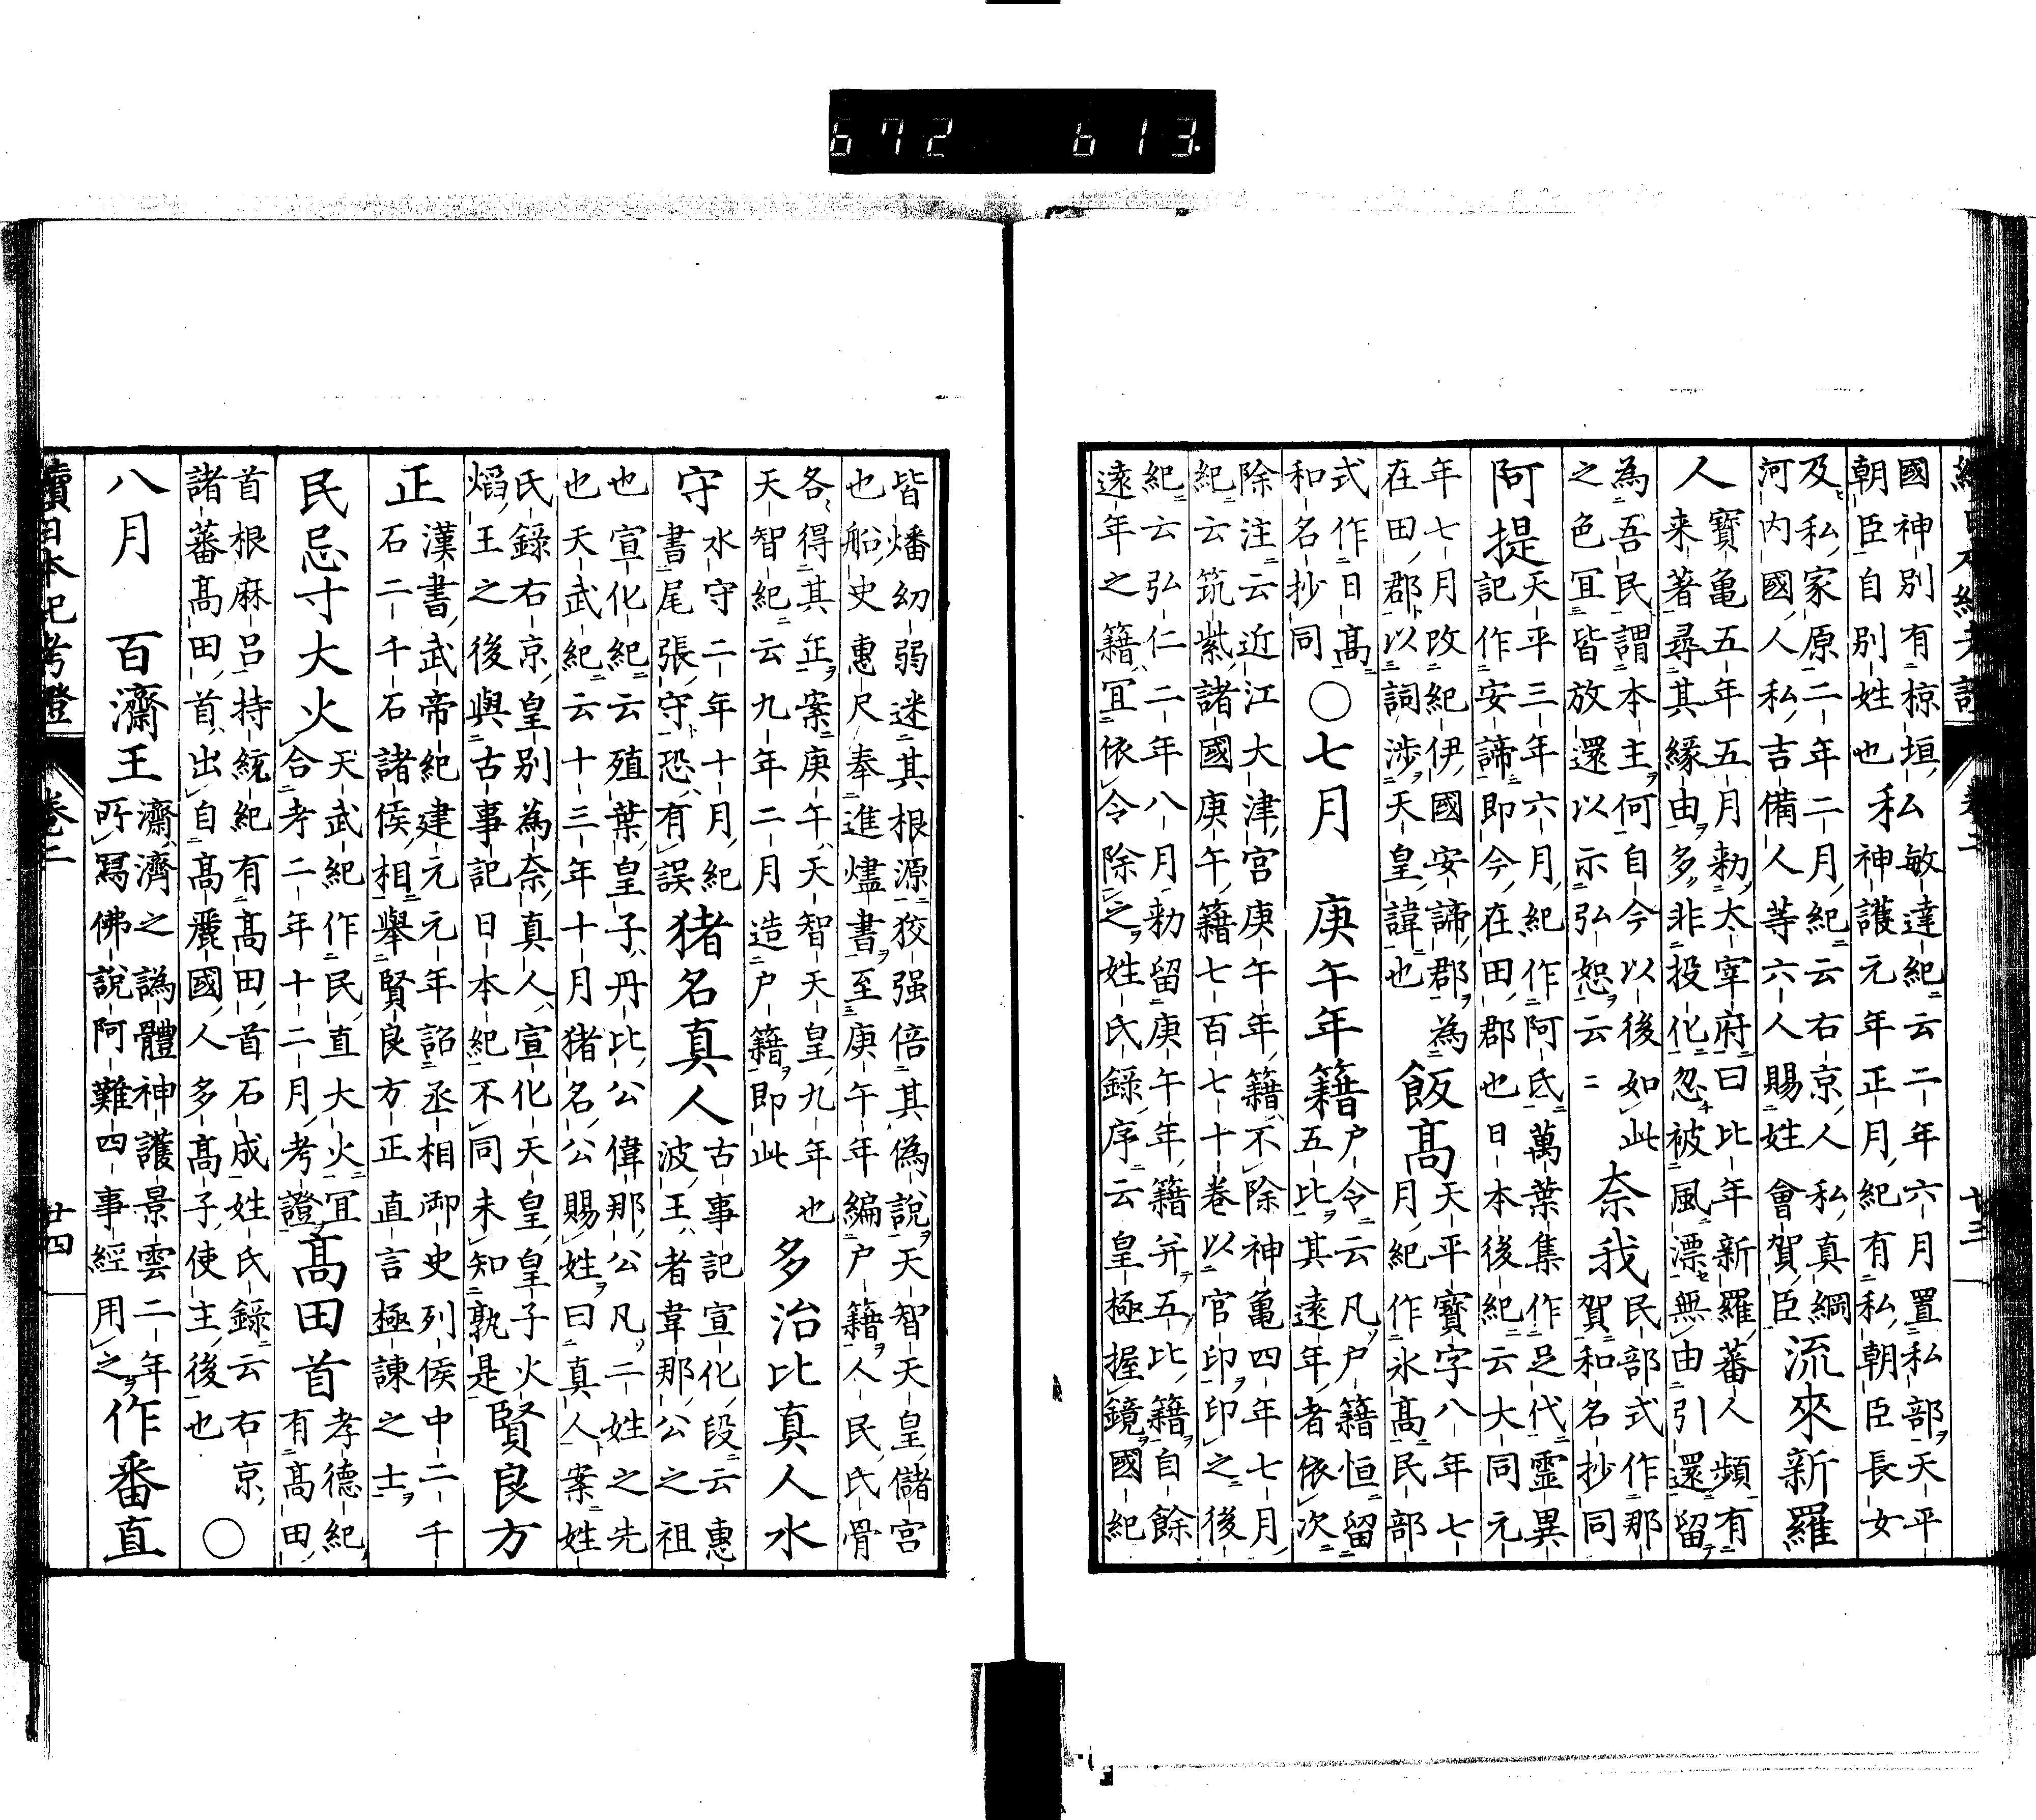 672 613
國神別有椋垣私敏達紀云二年六月置私部天平
朝臣自別姓也私神護元年正月紀有私朝臣長女
及私家原二年二月紀云右京人私真綱流來新羅
河内國人私吉備人等六人賜姓會賀臣
人寶亀五年五月勅太宰府曰比年新羅蕃人頻有
来著尋其縁由多非投化忽被風漂無由引還留
為吾民謂本主何自今以後如此奈我民部式作那
之色冝皆放還以示弘恕云〻賀和名抄同
阿提天平三年六月紀作阿氐萬葉集作足代靈異
記作安諦即今在田郡也日本後紀云大同元
年七月改紀伊國安諦郡為飯髙天平寶字八年七
在田郡以詞渉天皇諱也月紀作氷髙民部
式作日髙〇七月 庚午年籍戸令云凡戸籍恒留
和名抄同五比其遠年者依次
除注云近江大津宮庚午年籍不除神亀四年七月
紀云筑紫諸國庚午籍七百七十卷以官印印之後
紀云弘仁二年八月勅留庚午年籍并五比籍自餘
遠年之籍冝依令除之姓氏錄序云皇極握鏡國紀
皆燔幼弱迷其根源狡强倍其偽說天智天皇儲宮
也船史惠尺奉進燼書至庚午年編戸籍人民氏骨
各得其正案庚午天智天皇九年也多治比真人水
天智紀云九年二月造戸籍即此
守水守二年十月紀猪名真人古事記宣化段云惠
書尾張守恐有誤波王者韋那公之祖
也宣化紀云殖葉皇子丹比公偉那公凡二姓之先
也天武紀云十三年十月猪名公賜姓曰真人案姓
氏錄右京皇別為奈真人宣化天皇皇子火賢良方
焰王之後與古事記日本紀不同未知孰是
正漢書武帝紀建元元年詔丞相御史列侯中二千
石二千石諸侯相舉賢良方正直言極諫之士
民忌寸大火天武紀作民直大火冝髙田首孝德紀
合考二年十二月考證有髙田
首根麻呂持統紀有髙田首石成姓氏錄云右京〇
諸蕃髙田首出自髙麗國人多髙子使主後也
八月 百濟王濟濟之譌體神護景雲二年作番直
所寫佛說阿難四事經用之
續日本紀考證 卷二 廿四